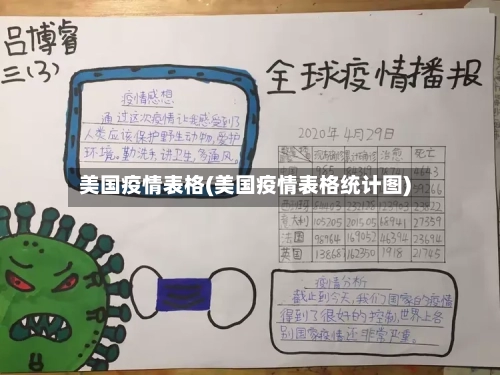 吕博睿
三(3)
全球疫情播报
疫情感想
通过这次疫情让我感受到了
人类应该保护野生动物,爱护
环境。勤洗手,讲卫生,多通风。
2020年4月29日
治愈 死亡
美国疫情表格(美国疫情表格统计图)
意大利 105205 201505 68941 27359
法国 96964 169053 46394 23694
英国 138687 162350 1918 21745
疫情分析
截止到今天,我们国家的疫情
得到了很好的控制,世界上各
别国家疫情还非常严重。